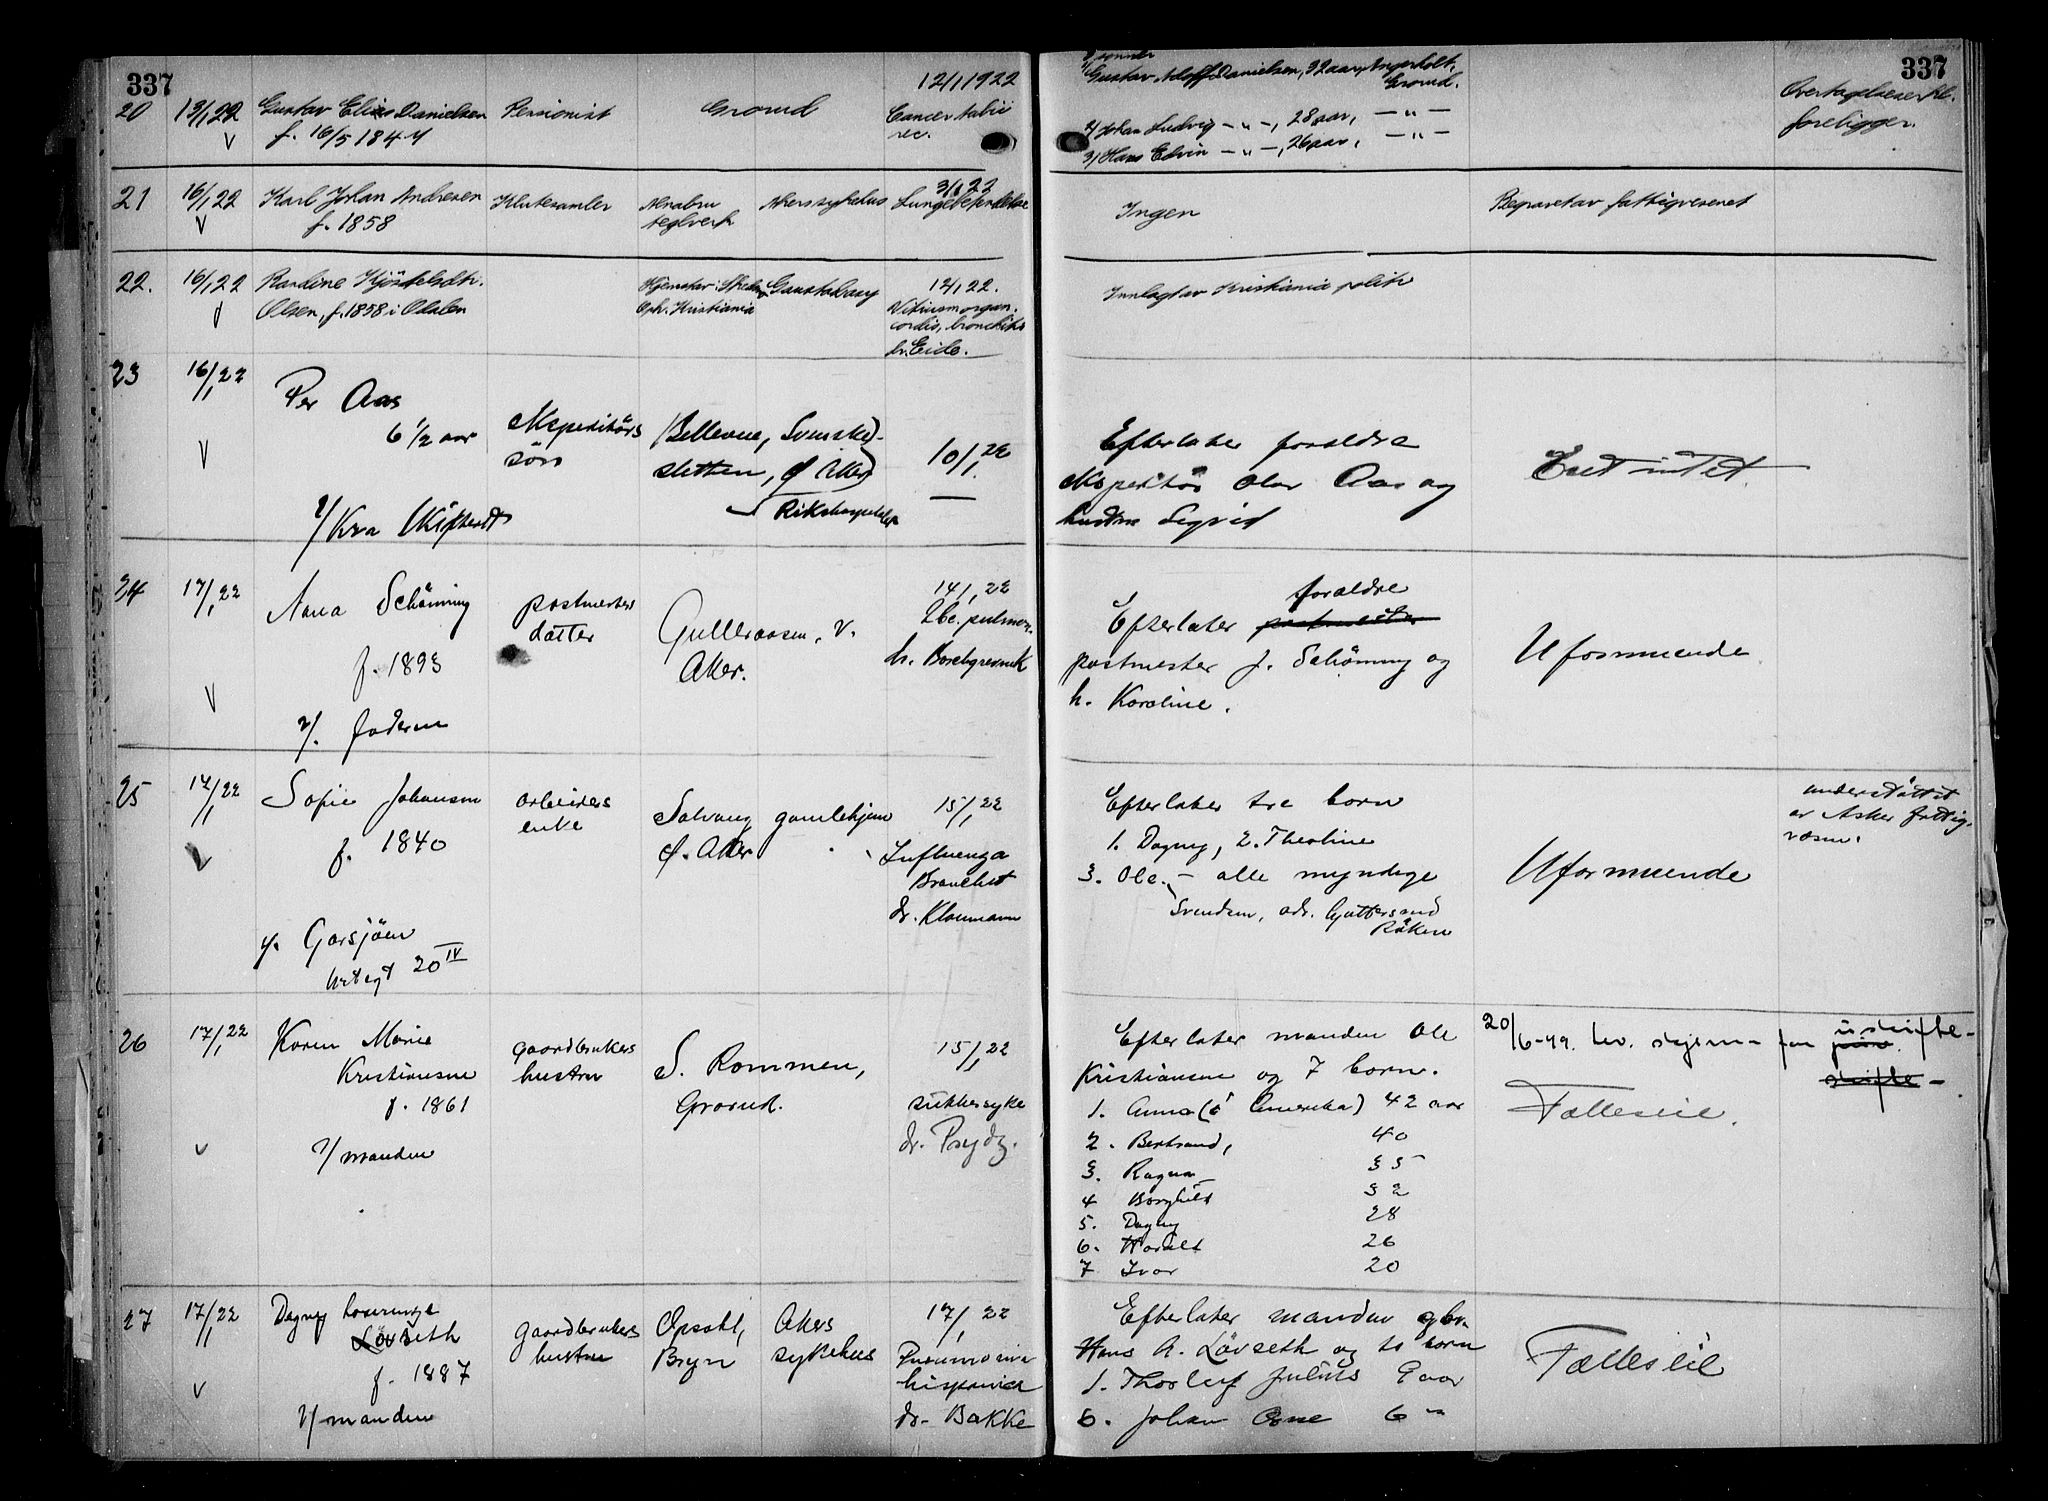 337
337
20 13/1 22 Gustav Elias Danielsen Pensionist Grorud 12/1 1922
f. 16/5 1844 Cancer
rec.
1/ Gustav Adolf Danielsen, 32 aar,
Grorud.
2/ Johan Ludvig — " —, 28 aar, — " —
3/ Hans Edvin — " —, 26 aar, — " —
foreligger.
21 16/1 22 Karl Johan Andresen Klutesamler Alnabru Akers sykehus 3/1 22
f. 1858 teglverk
Ingen
Begravet av fattigvesenet
22. 16/1 22 Gaustad asyl 12/1 22.
Olsen, f. 1858 i Odalen Kristiania
cordis, bronchitis
dr. Eide.
Innlagt av Kristiania politi
23 16/1 22
Per Aas
6 1/2 aar
Ekspeditörs
sön
Bellevue, Svenske-
sletten, Ö. Aker
Rikshospitalet
10/1 22
Efterlater foreldre
ekspeditör Olav Aas og
hustru Sigrid
Eiet intet.
24 17/1 22
Schönning
f. 1893
v/. faderen
postmesters
datter
Gulleraasen, V.
Aker.
14/1 22
Tbc. pulmon.
dr. Borchgrevink
foreldre
Efterlater postmester
postmester J. Schönning og
h. Karoline.
Uformuende
25 17/1 22
Sofie Johansen
f. 1840
20 IV
arbeiders
enke
Solvang gamlehjem
Ö. Aker
15/1 22
Influenza
Bronchit
dr. Kloumann
Efterlater tre born
1. Dagny, 2. Theoline
3. Ole. — alle myndige
Svendsen, adr. Gjettersund
Röken
Uformuende
understöttet
av Asker fattig-
væsen.
26 17/1 22
Karen Marie
Kristiansen
f. 1861
v/ manden
gaardbrukers
hustru
S. Rommen,
Grorud.
15/1 22
sukkersyke
dr. Prydz.
Efterlater manden Ole
Kristiansen og 7 born.
1. Anna (i Amerika) 42 aar
2. Bertrand, 40
3. Ragna 35
4 Borghild 32
5. Dagny 28
6. Harald 26
7 Ivar 20
20/6-49.
skifte
Fælleseie.
27 17/1 22
Dagny
Lövseth
f. 1887
v/ manden
gaardbrukers
hustru
Opsahl,
Bryn
Akers
sykehus
17/1 22
Pneumonia
hispanica
dr. Bakke
Efterlater manden gbr.
Hans A. Lövseth og to born
1. Thorleif Julius 9 aar
2. Johan Arne 6 "
Fælleseie